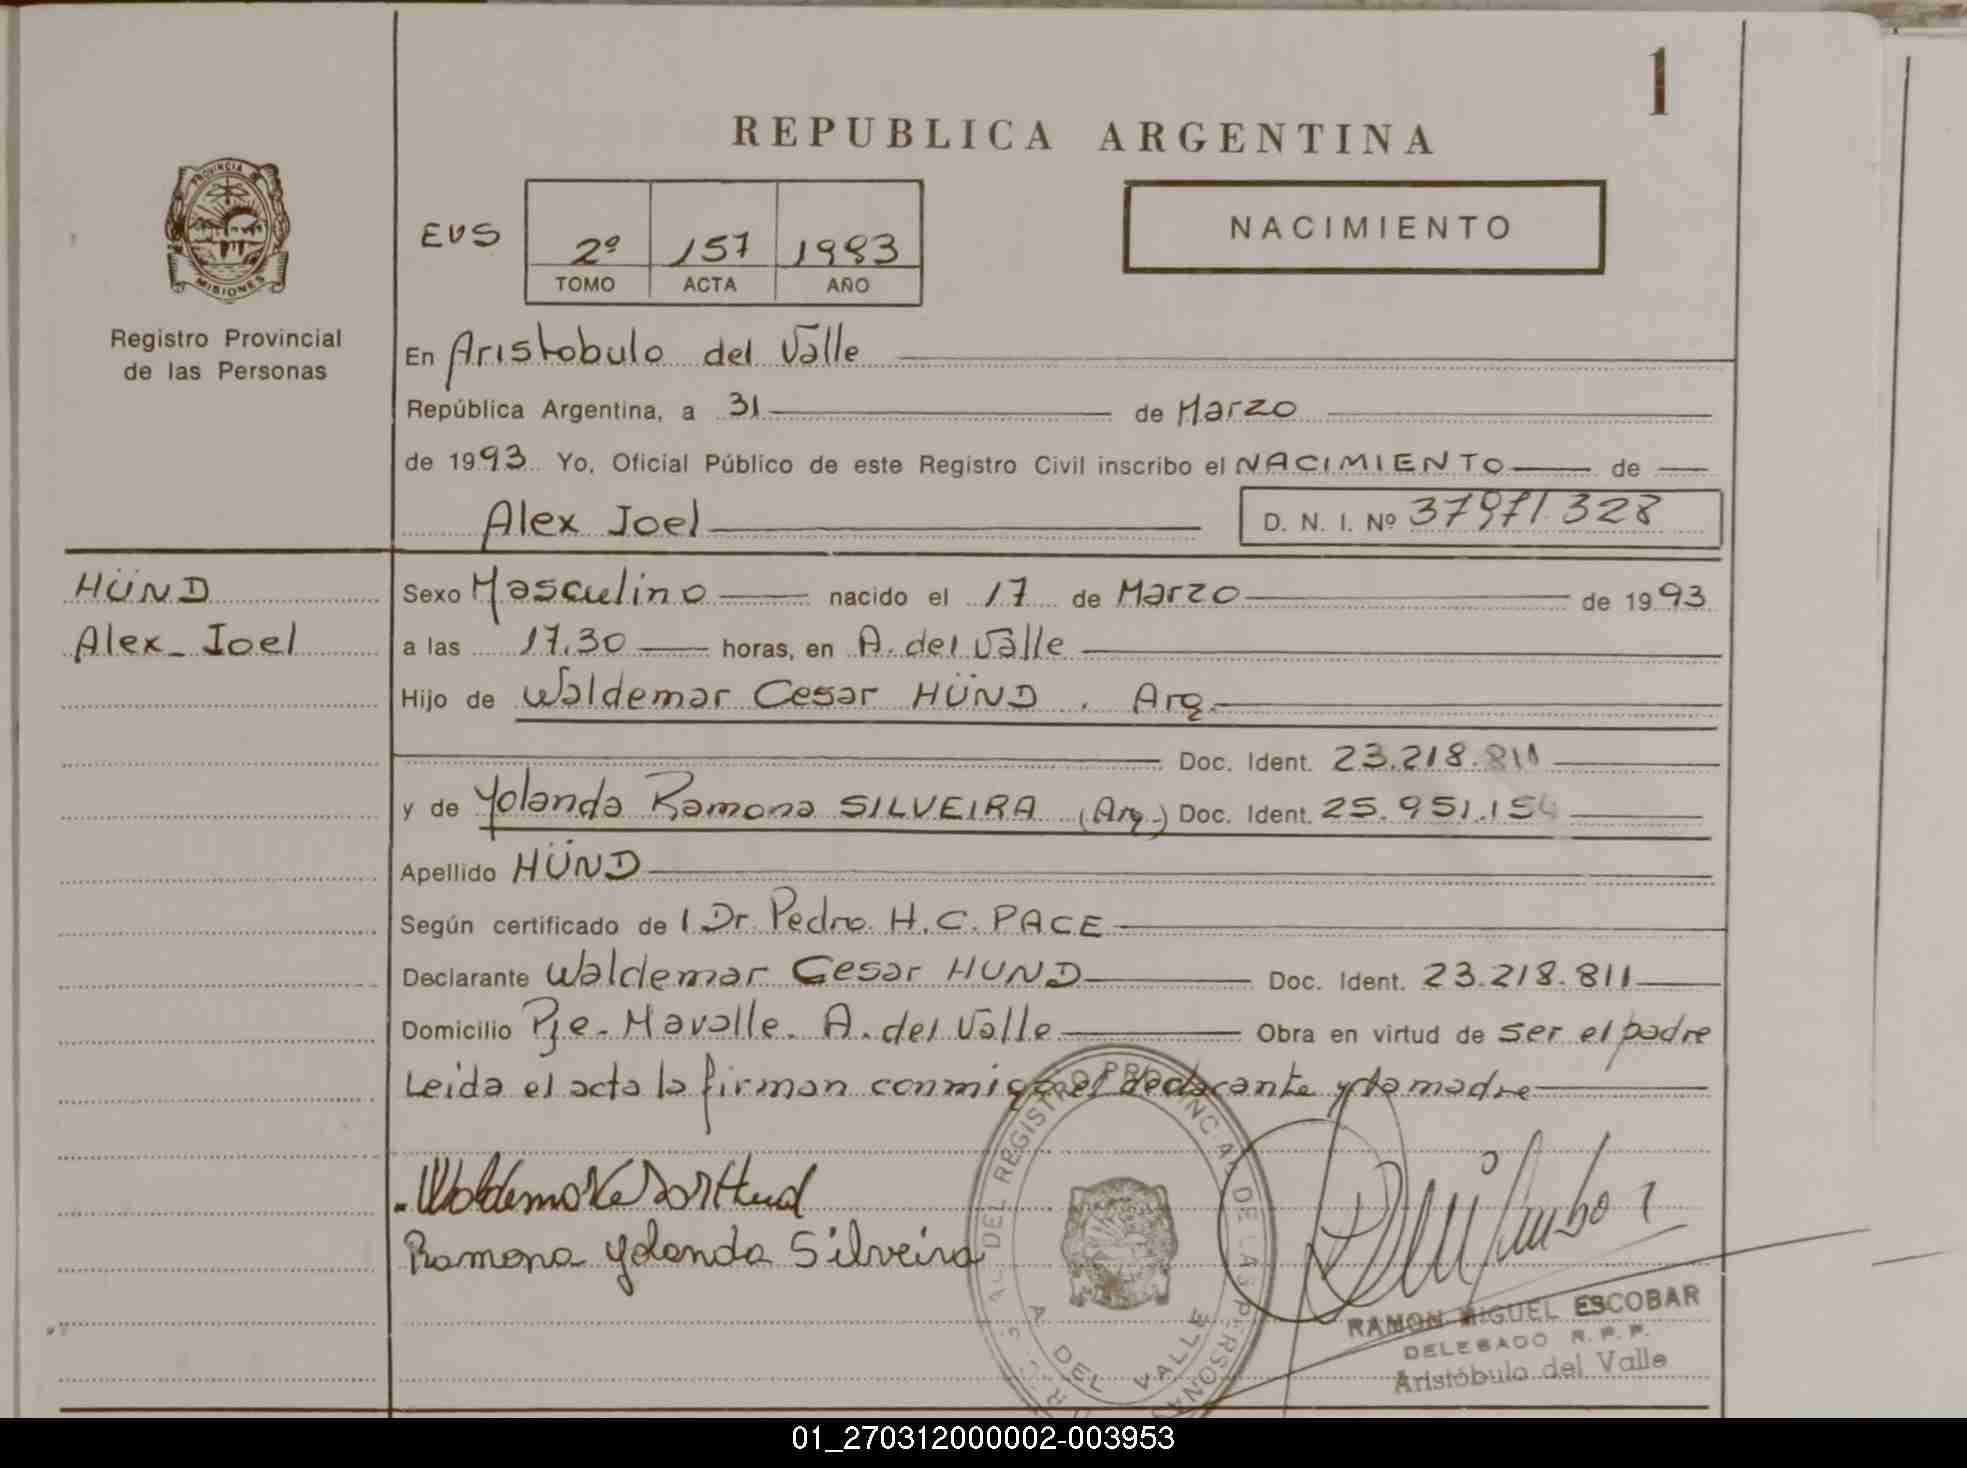 1
REPUBLICA ARGENTINA
PROVINCIA DE
MISIONES
Registro Provincial
de las Personas
EVS
2º 157 1993
TOMO ACTA AÑO
NACIMIENTO
En Aristobulo del Valle
República Argentina, a 31 de Marzo
de 1993 Yo, Oficial Público de este Registro Civil inscribo el NACIMIENTO de
Alex Joel
D. N. I. Nº 37971328
HÜND
Alex Joel
Sexo Masculino nacido el 17 de Marzo de 1993
a las 17.30 horas, en A. del Valle
Hijo de Waldemar Cesar HÜND . Arg.
Doc. Ident. 23.218.811
y de Yolanda Ramona SILVEIRA (Arg.) Doc. Ident. 25.951.15
Apellido HÜND
Según certificado de l Dr. Pedro H. C. PACE
Declarante Waldemar Cesar HUND Doc. Ident. 23.218.811
Domicilio Pje. Mavalle. A. del Valle Obra en virtud de ser el padre
Leida el acta la firman conmigo el declarante y la madre
Waldemar Cesar Hund
Ramona Yolanda Silveira
DEL REGISTRO PROVINCIAL DE LAS PERSONAS
A. DEL VALLE
RAMON MIGUEL ESCOBAR
DELEGADO R. P. P.
Aristóbulo del Valle
01_270312000002-003953